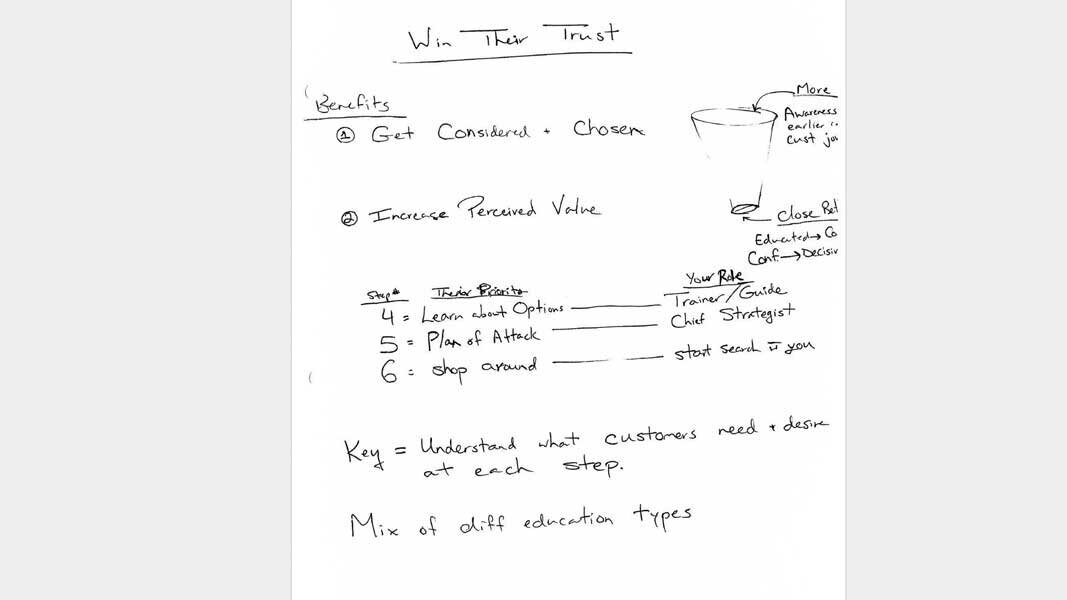 Win Their Trust
Benefits
① Get Considered + Chosen
More
Awareness
earlier
cust
② Increase Perceived Value
Close
Educated →
Conf. →
Step # Their Priority Your Role
4 = Learn about Options — Trainer/Guide
5 = Plan of Attack — Chief Strategist
6 = shop around — start search w you
Key = Understand what customers need + desire
at each step.
Mix of diff education types